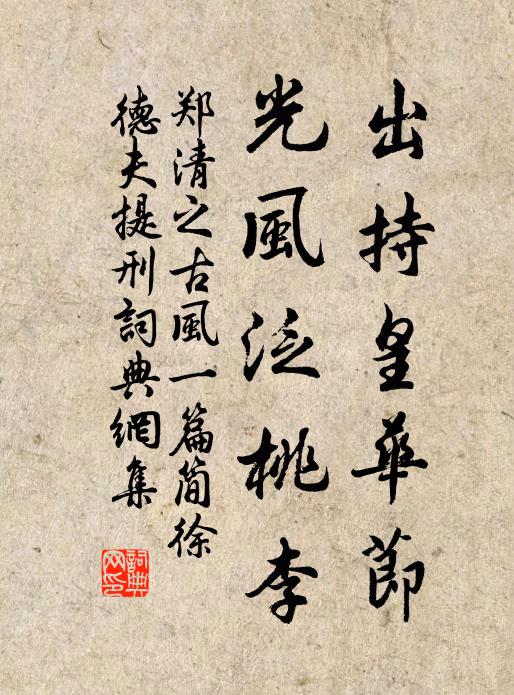 出持皇華節
光風泛桃李
郑清之古風一篇简徐
德夫提刑詞典網集
詞典网印